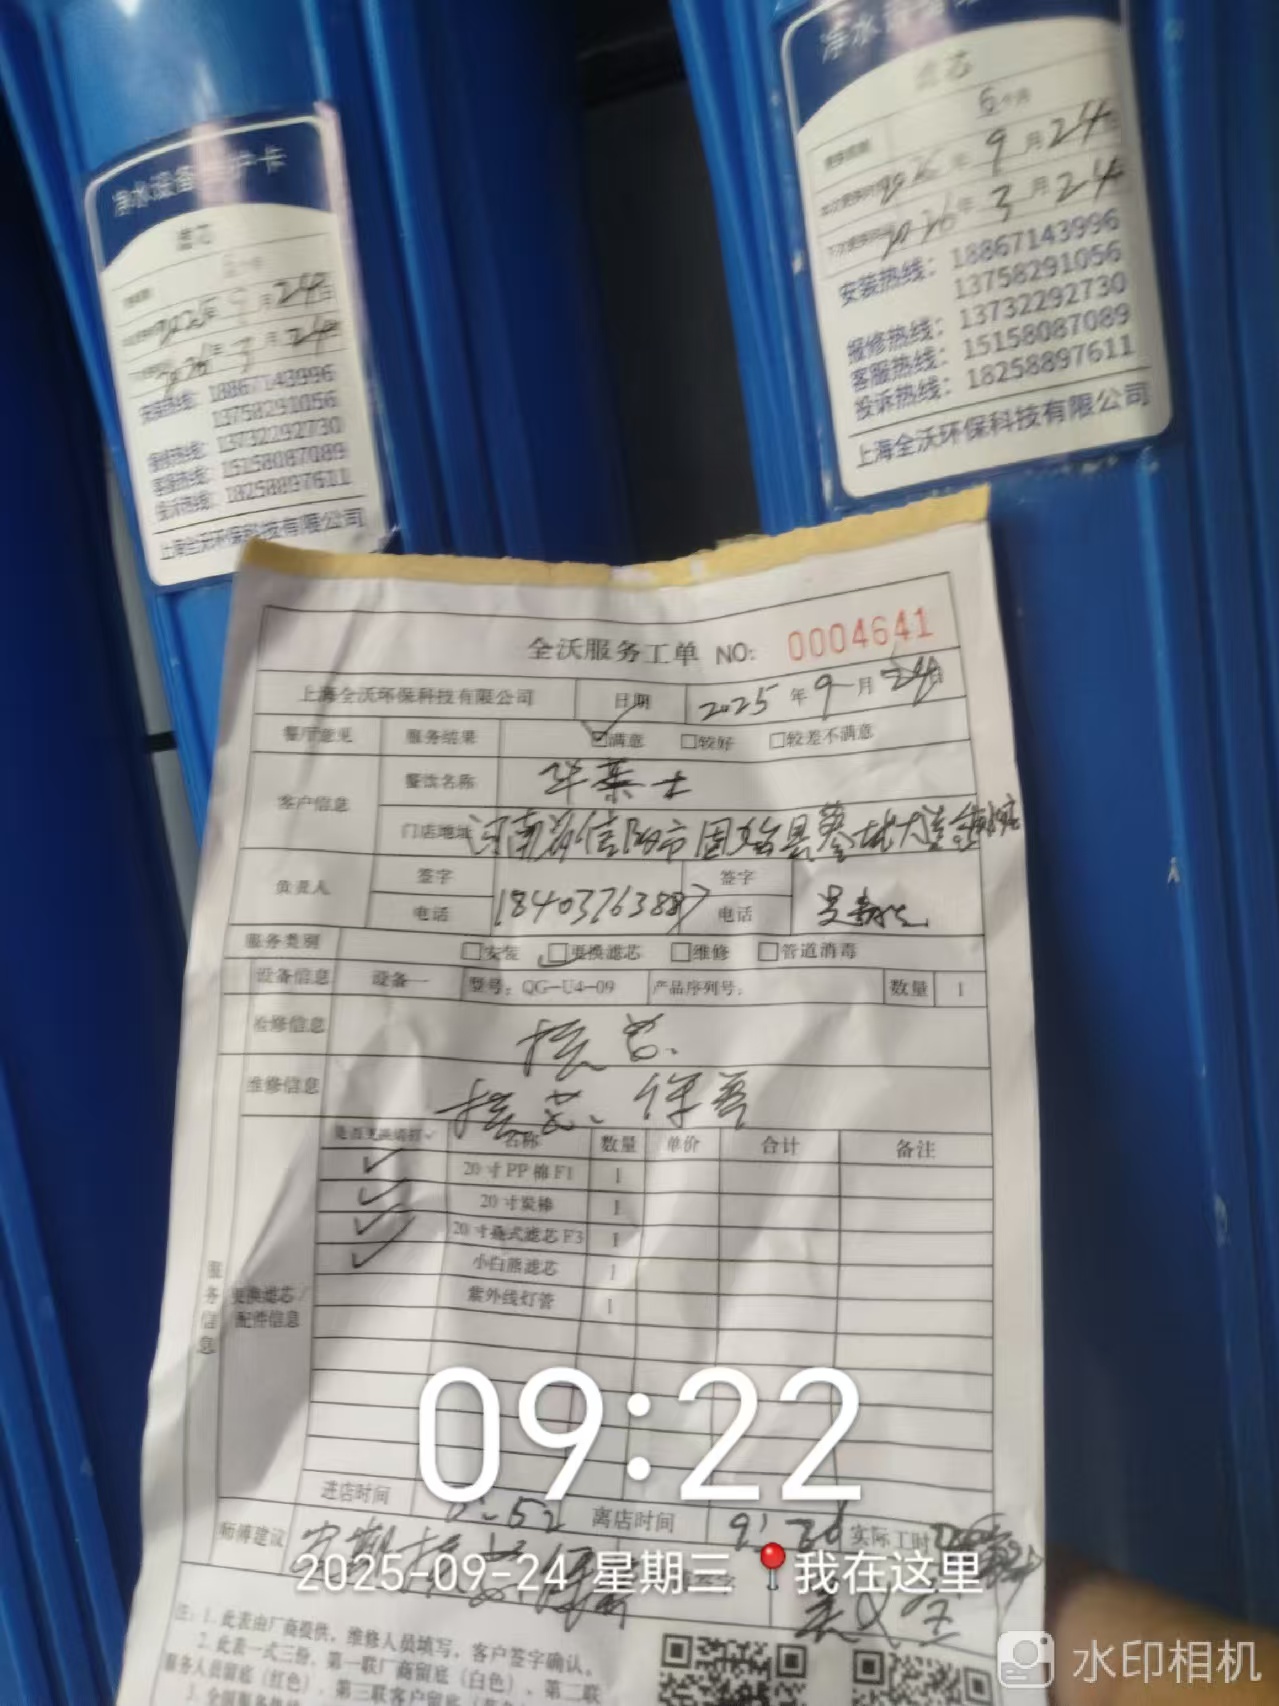 净水设备护卡
滤芯
2025年9月24日
2026年3月24
安装热线：18867143996
13758291056
报修热线：13732292730
客服热线：15158087089
投诉热线：18258897611
上海全沃环保科技有限公司
净水设备
滤芯
6个月
2025年9月24
2026年3月24
安装热线：18867143996
13758291056
报修热线：13732292730
客服热线：15158087089
投诉热线：18258897611
上海全沃环保科技有限公司
全沃服务工单 NO: 0004641
上海全沃环保科技有限公司 日期 2025年9月24日
餐厅意见 服务结果 ☑满意 □较好 □较差不满意
客户信息 餐饮名称 华莱士
门店地址 河南省信阳市固始县蓼城大道
负责人 签字 签字
电话 18403763887 电话
服务类别 □安装 □更换滤芯 □维修 □管道消毒
设备信息 设备一 型号：QG-U4-09 产品序列号： 数量 1
检修信息 换芯.
维修信息 换芯、保养
是否更换请打✓ 名称 数量 单价 合计 备注
✓ 20寸PP棉F1 1
✓ 20寸炭棒 1
✓ 20寸叠式滤芯F3 1
✓ 小白熊滤芯 1
紫外线灯管 1
服务信息
更换滤芯/
配件信息
09:22
进店时间 离店时间 实际工时
师傅建议 定期换芯保养
2025-09-24 星期三 📍我在这里
注：1. 此表由厂商提供，维修人员填写，客户签字确认。
2. 此表一式三份，第一联厂商留底（白色），第二联
服务人员留底（红色），第三联客户留底
水印相机